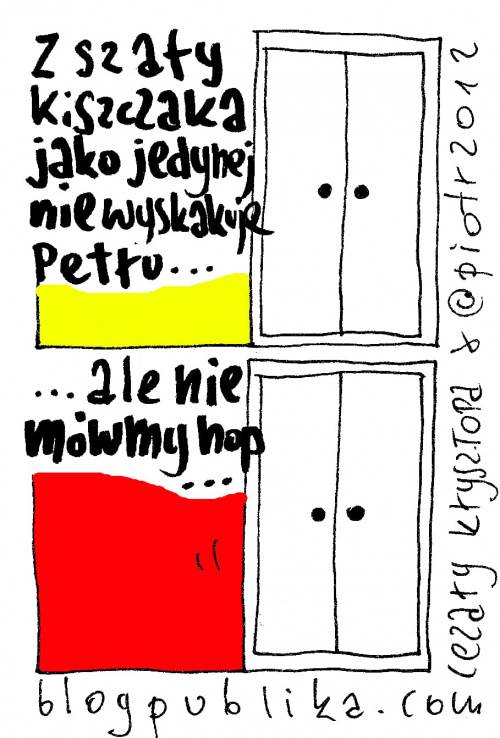 Z szafy
kiszczaka
jako jedynej
nie wyskakuje
Petru...
...ale nie
mówmy hop
...
cezary krysztopa & @piotr2012
blogpublika.com